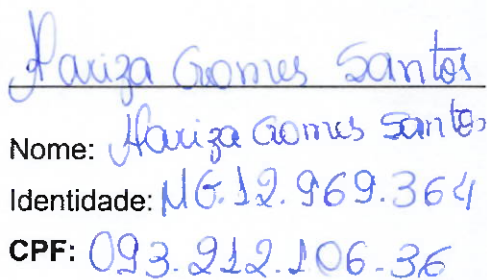 Mariza Gomes Santos
Nome: Mariza Gomes Santos
Identidade: MG.12.969.364
CPF: 093.212.106-36